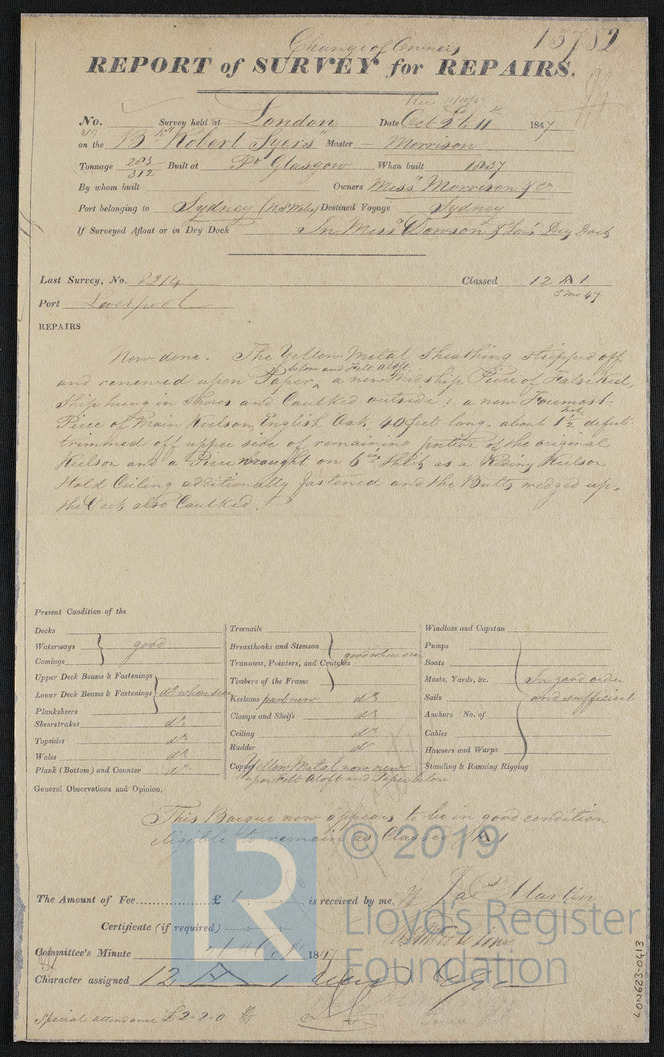 Change of Owners
13782
REPORT of SURVEY for REPAIRS.
No. Survey held at London Date Oct 1847
on the Bk "Robert Syers" Master Morrison
Tonnage 293 Built at Pt Glasgow When built 1837
312
By whom built Owners Messrs Morrison & Co
Port belonging to Sydney (N.S. Wales) Destined Voyage Sydney
If Surveyed Afloat or in Dry Dock In Messrs Dowson & Son's Dry Dock
Last Survey, No. 8214 Classed 12 A 1
Port Liverpool
5 mo 47
REPAIRS
Now done. The Yellow Metal Sheathing stripped off
below and Felt aloft,
and renewed upon Paper, a new Midship Piece of False Keel,
Ship hung in Shores and Caulked outside; a new Foremost
Piece of Main Keelson, English Oak, 40 feet long, about 1 1/2 depth
trimmed off upper side of remaining portion of the original
Keelson and a Piece brought on 6 ins thick as a Riding Keelson
Hold Ceiling additionally fastened and the Butts wedged up,
the Deck also Caulked.
Present Condition of the
Decks
Waterways good
Comings
Upper Deck Beams & Fastenings
Lower Deck Beams & Fastenings do where seen
Planksheers
Sheerstrakes do
Topsides do
Wales do
Plank (Bottom) and Counter do
Treenails
Breasthooks and Stemson good where seen
Transoms, Pointers, and Crutches
Timbers of the Frame
Keelsons part new do
Clamps and Shelfs do
Ceiling do
Rudder do
Copper Yellow Metal now new
upon Felt Aloft and Paper below
Windlass and Capstan
Pumps
Boats
Masts, Yards, &c. In good order
Sails and sufficient
Anchors No. of
Cables
Hawsers and Warps
Standing & Running Rigging
General Observations and Opinion,
This Barque now appears to be in good condition
eligible to remain as Classed A 1
© 2019
LR
The Amount of Fee £ 1 is received by me, Jas Martin
Lloyd's Register
Certificate (if required)
Foundation
Committee's Minute 1847
Character assigned 12 A 1
Special attendance £2-2-0
LON623-0413